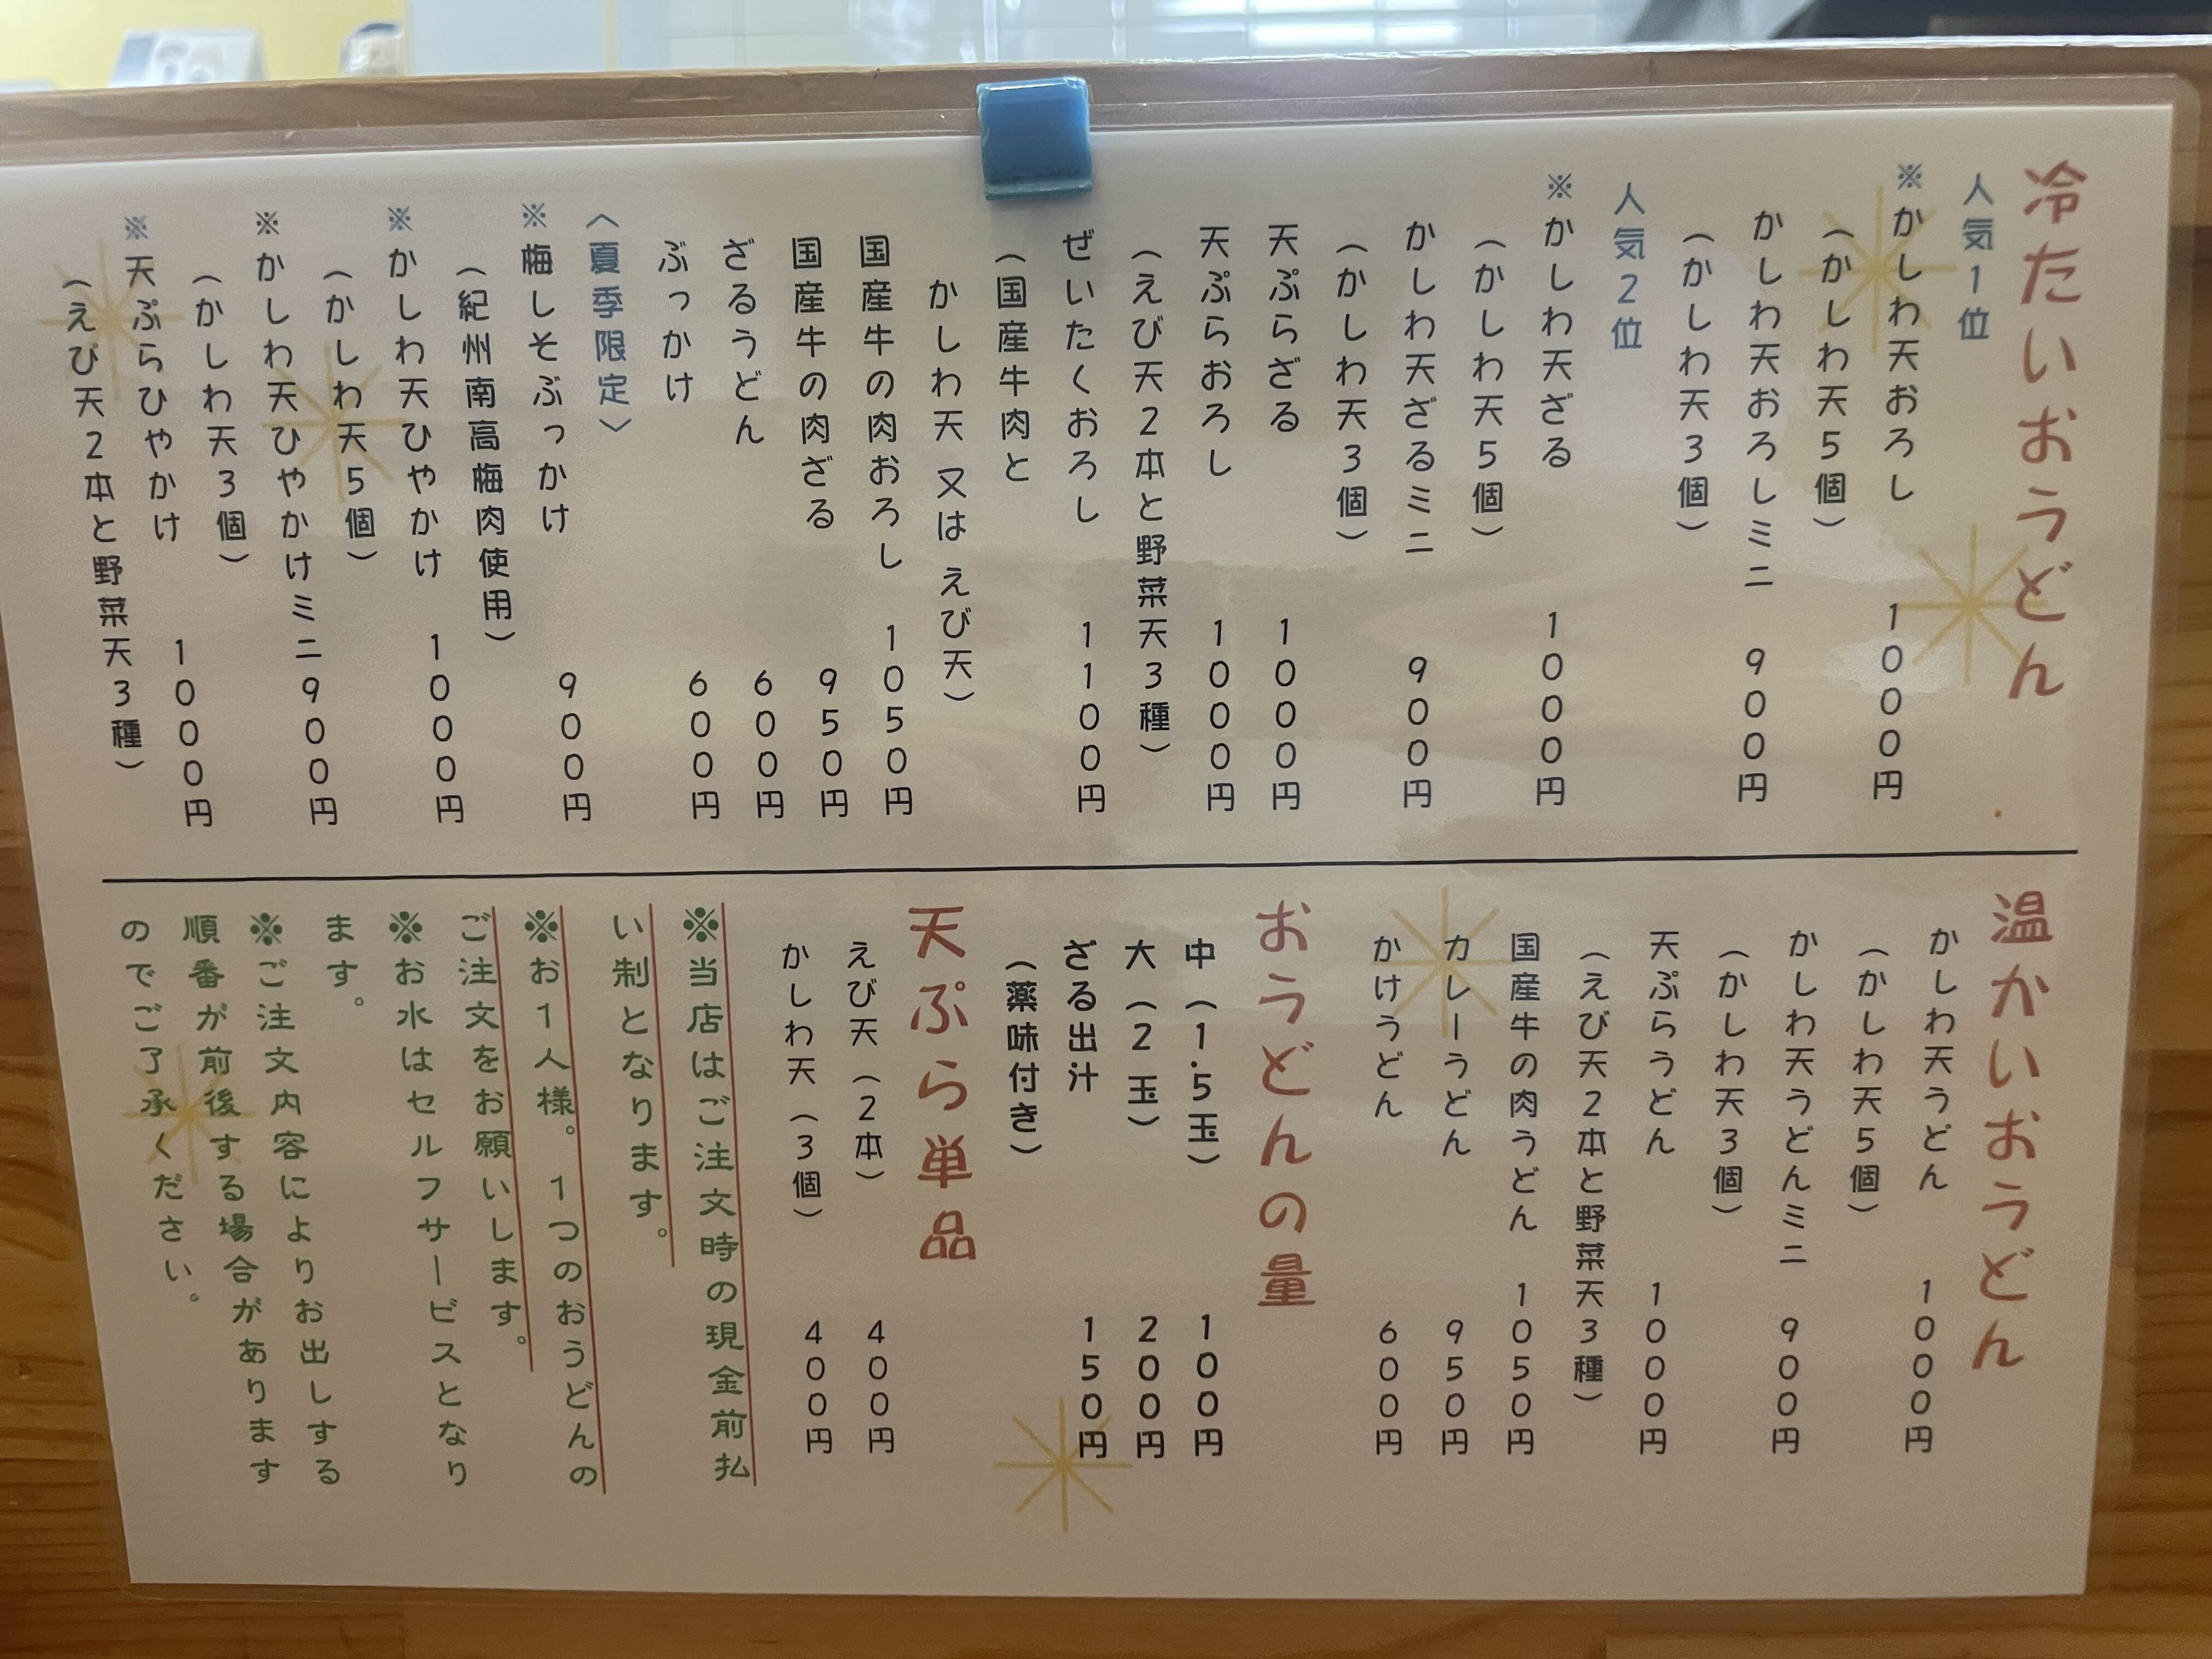 冷たいおうどん
人気1位
※かしわ天おろし 1000円
（かしわ天5個）
かしわ天おろしミニ 900円
（かしわ天3個）
人気2位
※かしわ天ざる 1000円
（かしわ天5個）
かしわ天ざるミニ 900円
（かしわ天3個）
天ぷらざる 1000円
天ぷらおろし 1000円
（えび天2本と野菜天3種）
ぜいたくおろし 1100円
（国産牛肉と
かしわ天 又は えび天）
国産牛の肉おろし 1050円
国産牛の肉ざる 950円
ざるうどん 600円
ぶっかけ 600円
〈夏季限定〉
※梅しそぶっかけ 900円
（紀州南高梅肉使用）
※かしわ天ひやかけ 1000円
（かしわ天5個）
※かしわ天ひやかけミニ 900円
（かしわ天3個）
※天ぷらひやかけ 1000円
（えび天2本と野菜天3種）
温かいおうどん
かしわ天うどん 1000円
（かしわ天5個）
かしわ天うどんミニ 900円
（かしわ天3個）
天ぷらうどん 1000円
（えび天2本と野菜天3種）
国産牛の肉うどん 1050円
カレーうどん 950円
かけうどん 600円
おうどんの量
中（1.5玉） 100円
大（2玉） 200円
ざる出汁 150円
（薬味付き）
天ぷら単品
えび天（2本） 400円
かしわ天（3個） 400円
※当店はご注文時の現金前払
い制となります。
※お1人様。1つのおうどんの
ご注文をお願いします。
※お水はセルフサービスとなり
ます。
※ご注文内容によりお出しする
順番が前後する場合があります
のでご了承ください。